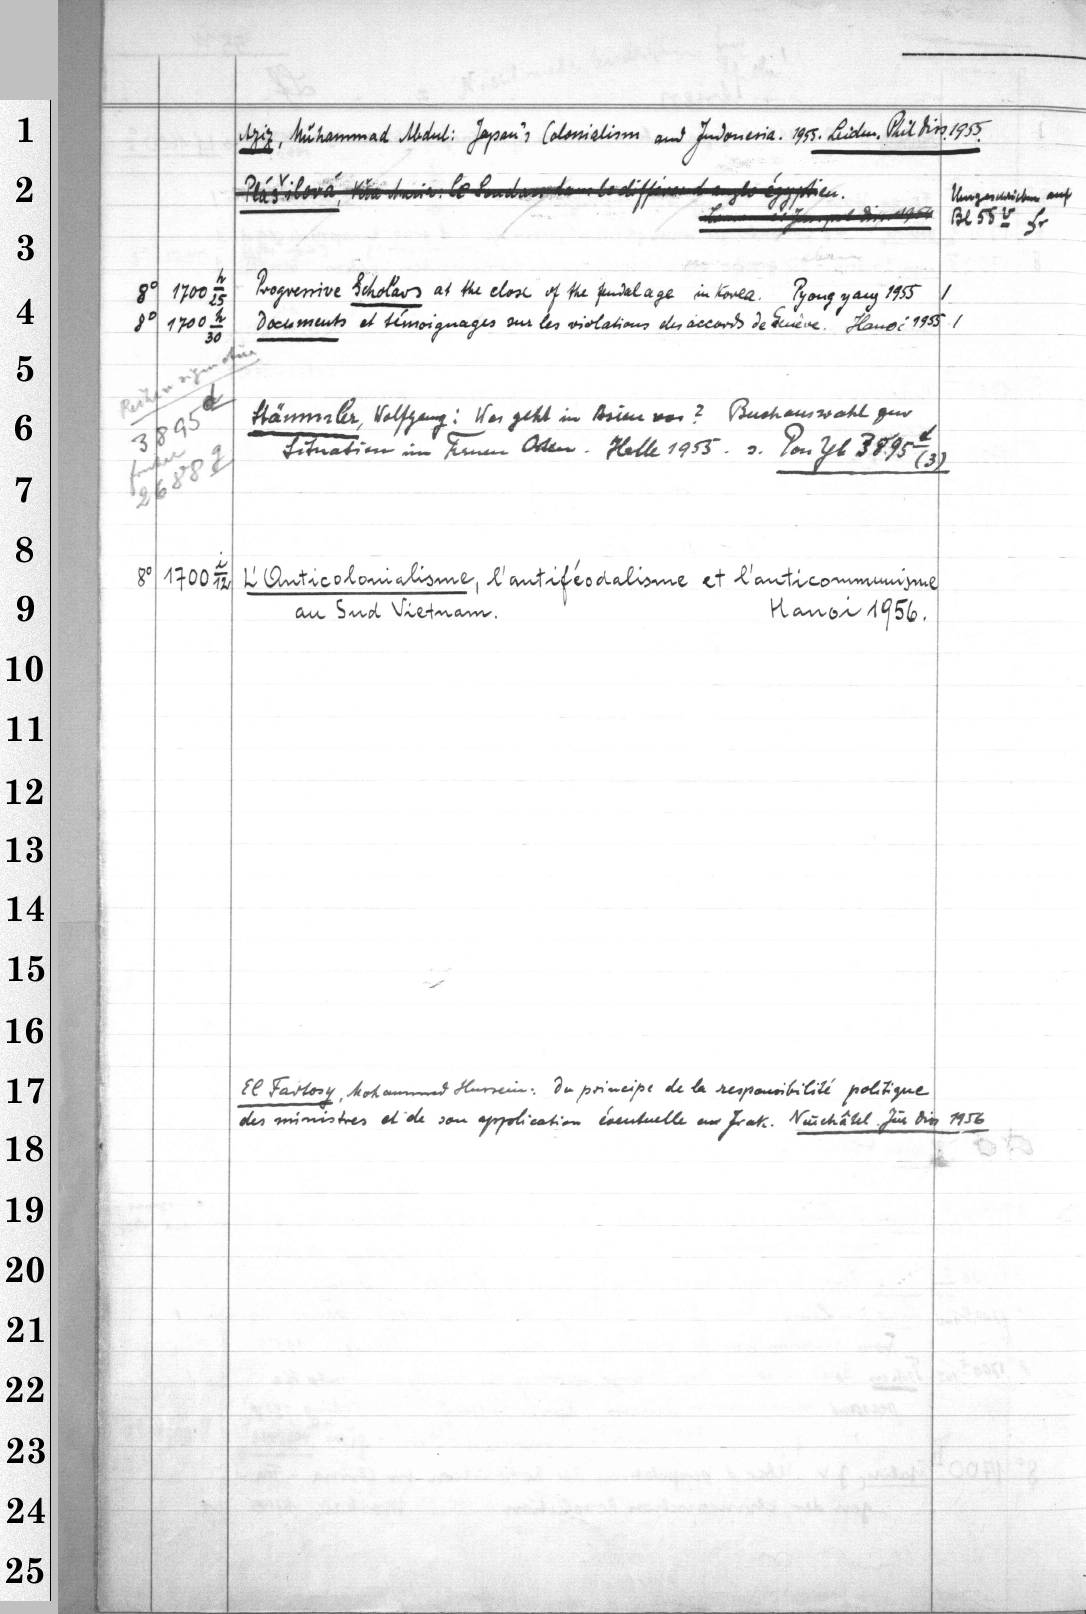 1
Aziz, Muhammad Abdul: Japan's Colonialism and Indonesia. 1955. Leiden, Phil Diss. 1955.
2
Plášilová, Věra Marie: Le Soudan dans le différend anglo-égyptien.
Diss. 1954
Umgeschrieben auf
Bl 55 v
3
8° 1700 h/25 Progressive Scholars at the close of the feudal age in Korea. Pyongyang 1955 1
4
8° 1700 h/30 Documents et témoignages sur les violations des accords de Genève. Hanoi 1955 1
5
Reihensignatur
3895 d
früher
2688 g
6
Stämmler, Wolfgang: Was geht in Asien vor? Buchauswahl zur
Situation im Fernen Osten. Halle 1955. s. Pon Yb 3895 d/(3)
7
8
8° 1700 i/12 L'Anticolonialisme, l'antiféodalisme et l'anticommunisme
9
au Sud Vietnam. Hanoi 1956.
10
11
12
13
14
15
16
17
El Fartosy, Mohammed Hussein: Du principe de la responsibilité politique
des ministres et de son application éventuelle en Irak. Neuchâtel. Jur Diss 1956
18
19
20
21
22
23
24
25